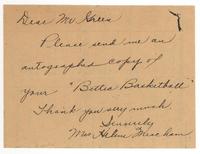 Dear Mr Green
Please send me an
autographed copy of
your "Better Basketball"
Thank you very much.
Sincerely
Mrs Helene Meacham